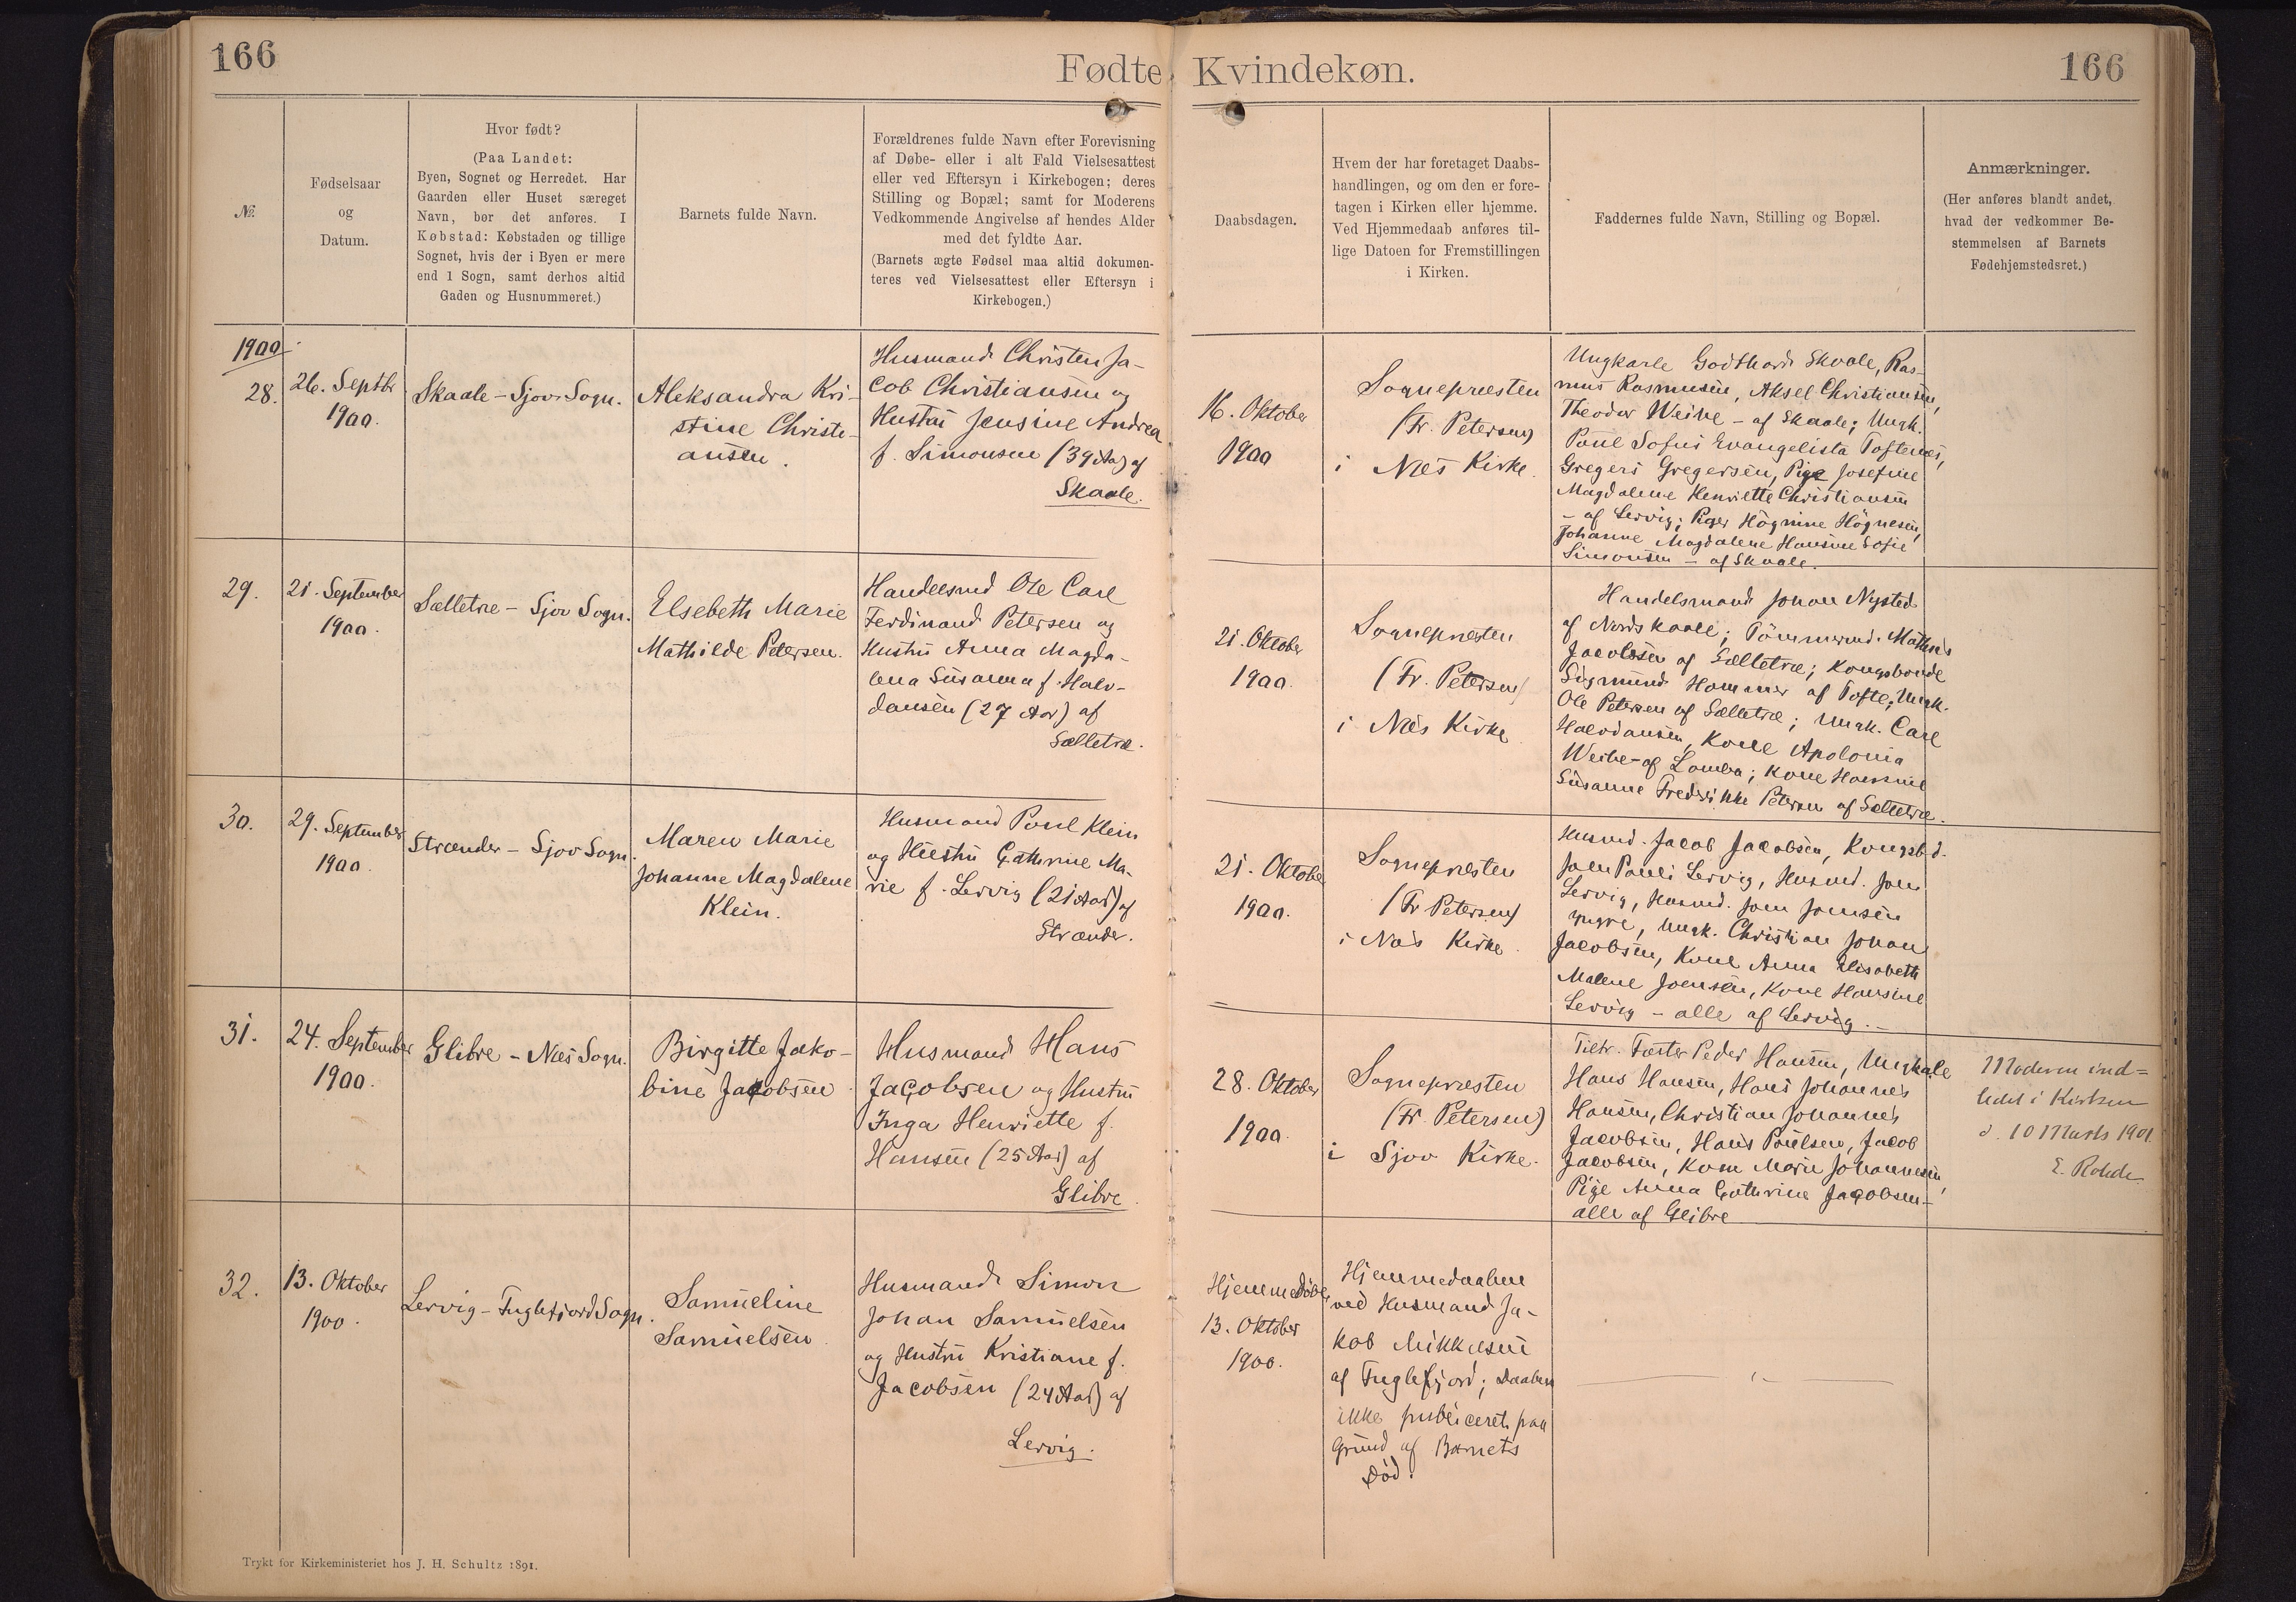 166
Fødte
Kvindekøn.
166
№.
Fødselsaar
og
Datum.
Hvor født?
(Paa Landet:
Byen, Sognet og Herredet. Har
Gaarden eller Huset særeget
Navn, bør det anføres. I
Købstad: Købstaden og tillige
Sognet, hvis der i Byen er mere
end 1 Sogn, samt derhos altid
Gaden og Husnummeret.)
Barnets fulde Navn.
Forældrenes fulde Navn efter Forevisning
af Døbe- eller i alt Fald Vielsesattest
eller ved Eftersyn i Kirkebogen; deres
Stilling og Bopæl; samt for Moderens
Vedkommende Angivelse af hendes Alder
med det fyldte Aar.
(Barnets ægte Fødsel maa altid dokumen-
teres ved Vielsesattest eller Eftersyn i
Kirkebogen.)
Daabsdagen.
Hvem der har foretaget Daabs-
handlingen, og om den er fore-
tagen i Kirken eller hjemme.
Ved Hjemmedaab anføres til-
lige Datoen for Fremstillingen
i Kirken.
Faddernes fulde Navn, Stilling og Bopæl.
Anmærkninger.
(Her anføres blandt andet,
hvad der vedkommer Be-
stemmelsen af Barnets
Fødehjemstedsret.)
1900
28.
26. Septbr
1900.
Skaale - Sjov Sogn.
Aleksandra Kri-
stine Christi-
ansen.
Husmand Christen Ja-
cob Christiansen og
Hustru Jensine Andrea
f. Simonsen (39 Aar) af
Skaale.
16. Oktober
1900
Sognepræsten
(Fr. Petersen)
i Næs Kirke.
Ungkarle Godthard Skaale, Ras-
mus Rasmusen, Aksel Christiansen,
Theodor Weihe - af Skaale; Ungk.
Poul Sofus Evangelista Toftenes,
Gregers Gregersen, Pige Josefine
Magdalene Henriette Christiansen
- af Lervig; Piger Högnine Högnesen,
Johanne Magdalene Hansine Sofie
Simonsen - af Skaale.
29.
21. September
1900.
Sælletræ - Sjov Sogn.
Elsebeth Marie
Mathilde Petersen.
Handelsmd Ole Carl
Ferdinand Petersen og
Hustru Anna Magda-
lena Susanna f. Halv-
dansen (27 Aar) af
Sælletræ.
21. Oktober
1900.
Sognepræsten
(Fr. Petersen)
i Næs Kirke
Handelsmand Johan Nysted
af Nordskaale; Tömmermd. Mathias
Jacobsen af Sælletræ; Kongsbonde
Sigmund Hammer af Tofte; Ungk.
Ole Petersen af Sælletræ; Ungk. Carl
Halvdansen, Kone Apolonia
Weihe - af Lamba; Kone Hansine
Susanne Frederikke Petersen af Sælletræ.
30.
29. September
1900.
Strænder - Sjov Sogn.
Maren Marie
Johanne Magdalene
Klein.
Husmand Poul Klein
og Hustru Cathrine Ma-
rie f. Lervig (21 Aar) af
Strænder.
21. Oktober
1900.
Sognepræsten
(Fr Petersen)
i Næs Kirke.
Husmd. Jacob Jacobsen, Kongsbd.
Joen Pauli Lervig, Husmd. Joen
Lervig, Husmd. Joen Joensen
yngre, Ungk. Christian Johan
Jacobsen, Kone Anna Elisabeth
Malene Joensen, Kone Hansine
Lervig - alle af Lervig.
31.
24. September
1900.
Glibre - Næs Sogn.
Birgitte Jako-
bine Jacobsen
Husmand Hans
Jacobsen og Hustru
Inga Henriette f.
Hansen (25 Aar) af
Glibre.
28. Oktober
1900.
Sognepræsten
(Fr. Petersen)
i Sjov Kirke.
Tiltr. Fæster Peder Hansen, Ungkarle
Hans Hansen, Hans Johannes
Hansen, Christian Johannes
Jacobsen, Hans Poulsen, Jacob
Jacobsen, Kone Marie Johannesen,
Pige Anna Cathrine Jacobsen -
alle af Glibre
Moderen ind=
ledet i Kirken
d. 10 Marts 1901
E. Rohde
32.
13. Oktober
1900.
Lervig - Fuglefjord Sogn.
Samueline
Samuelsen
Husmand Simon
Johan Samuelsen
og Hustru Kristiane f.
Jacobsen (24 Aar) af
Lervig.
Hjemmedøbt
13. Oktober
1900.
Hjemmedaaben
ved Husmand Ja-
kob Mikkelsen
af Fuglefjord; Daaben
ikke publiceret paa
Grund af Barnets
Død.
Trykt for Kirkeministeriet hos J. H. Schultz 1891.